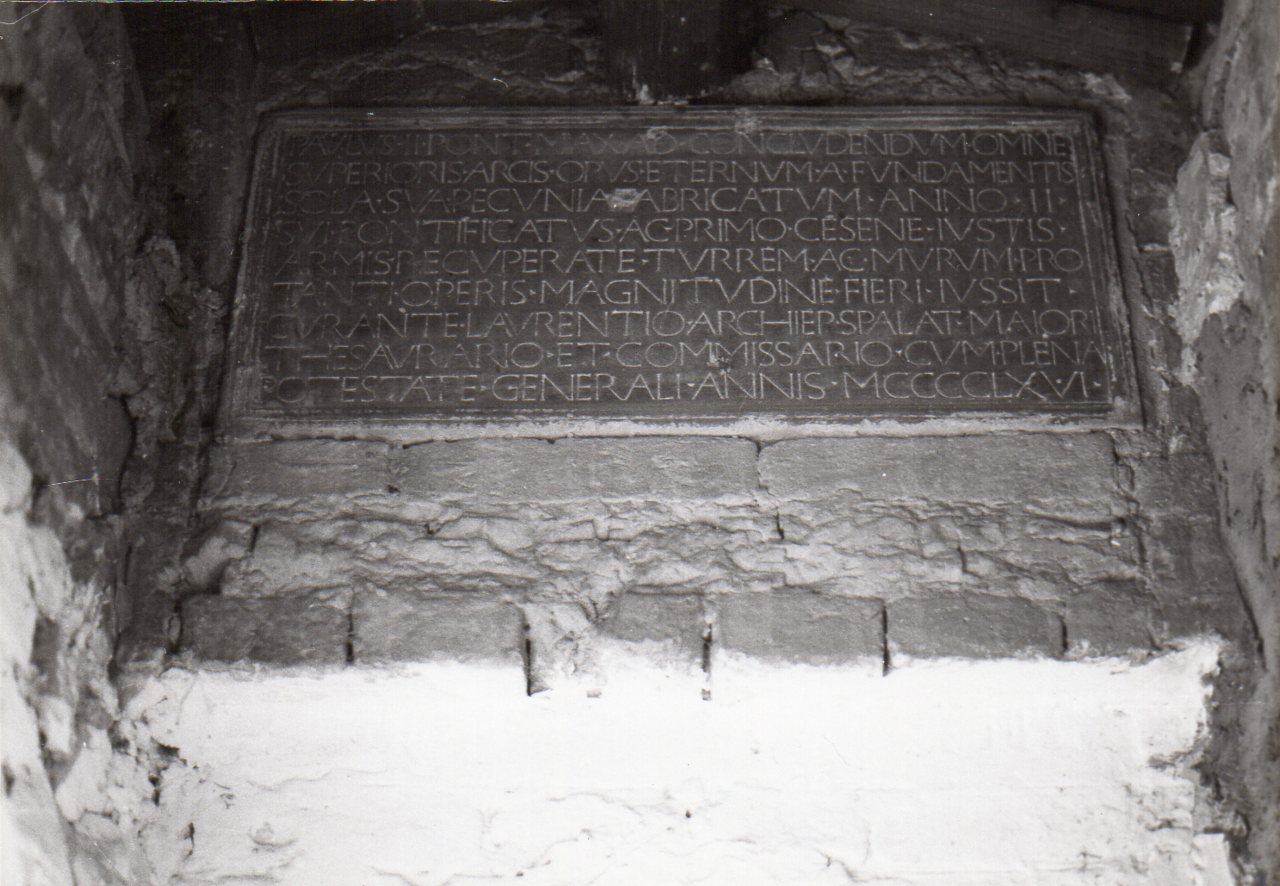 PAVLVS·II·PONT·MAX·AD·CONCLVDENDVM·OMNE
SVPERIORIS·ARCIS·OPVS·ETERNVM·A·FVNDAMENTIS
SOLA·SVA·PECVNIA·FABRICATVM·ANNO·II·
SVI·PONTIFICATVS·AC·PRIMO·CESENE·IVSTIS·
ARMIS·RECVPERATE·TVRREM·AC·MVRVM·PRO
TANTI·OPERIS·MAGNITVDINE·FIERI·IVSSIT·
CVRANTE·LAVRENTIO·ARCHIEPSPALAT·MAIORI
THESAVRARIO·ET·COMMISSARIO·CVM·PLENA
POTESTATE·GENERALI·ANNIS·MCCCCLXV·I·